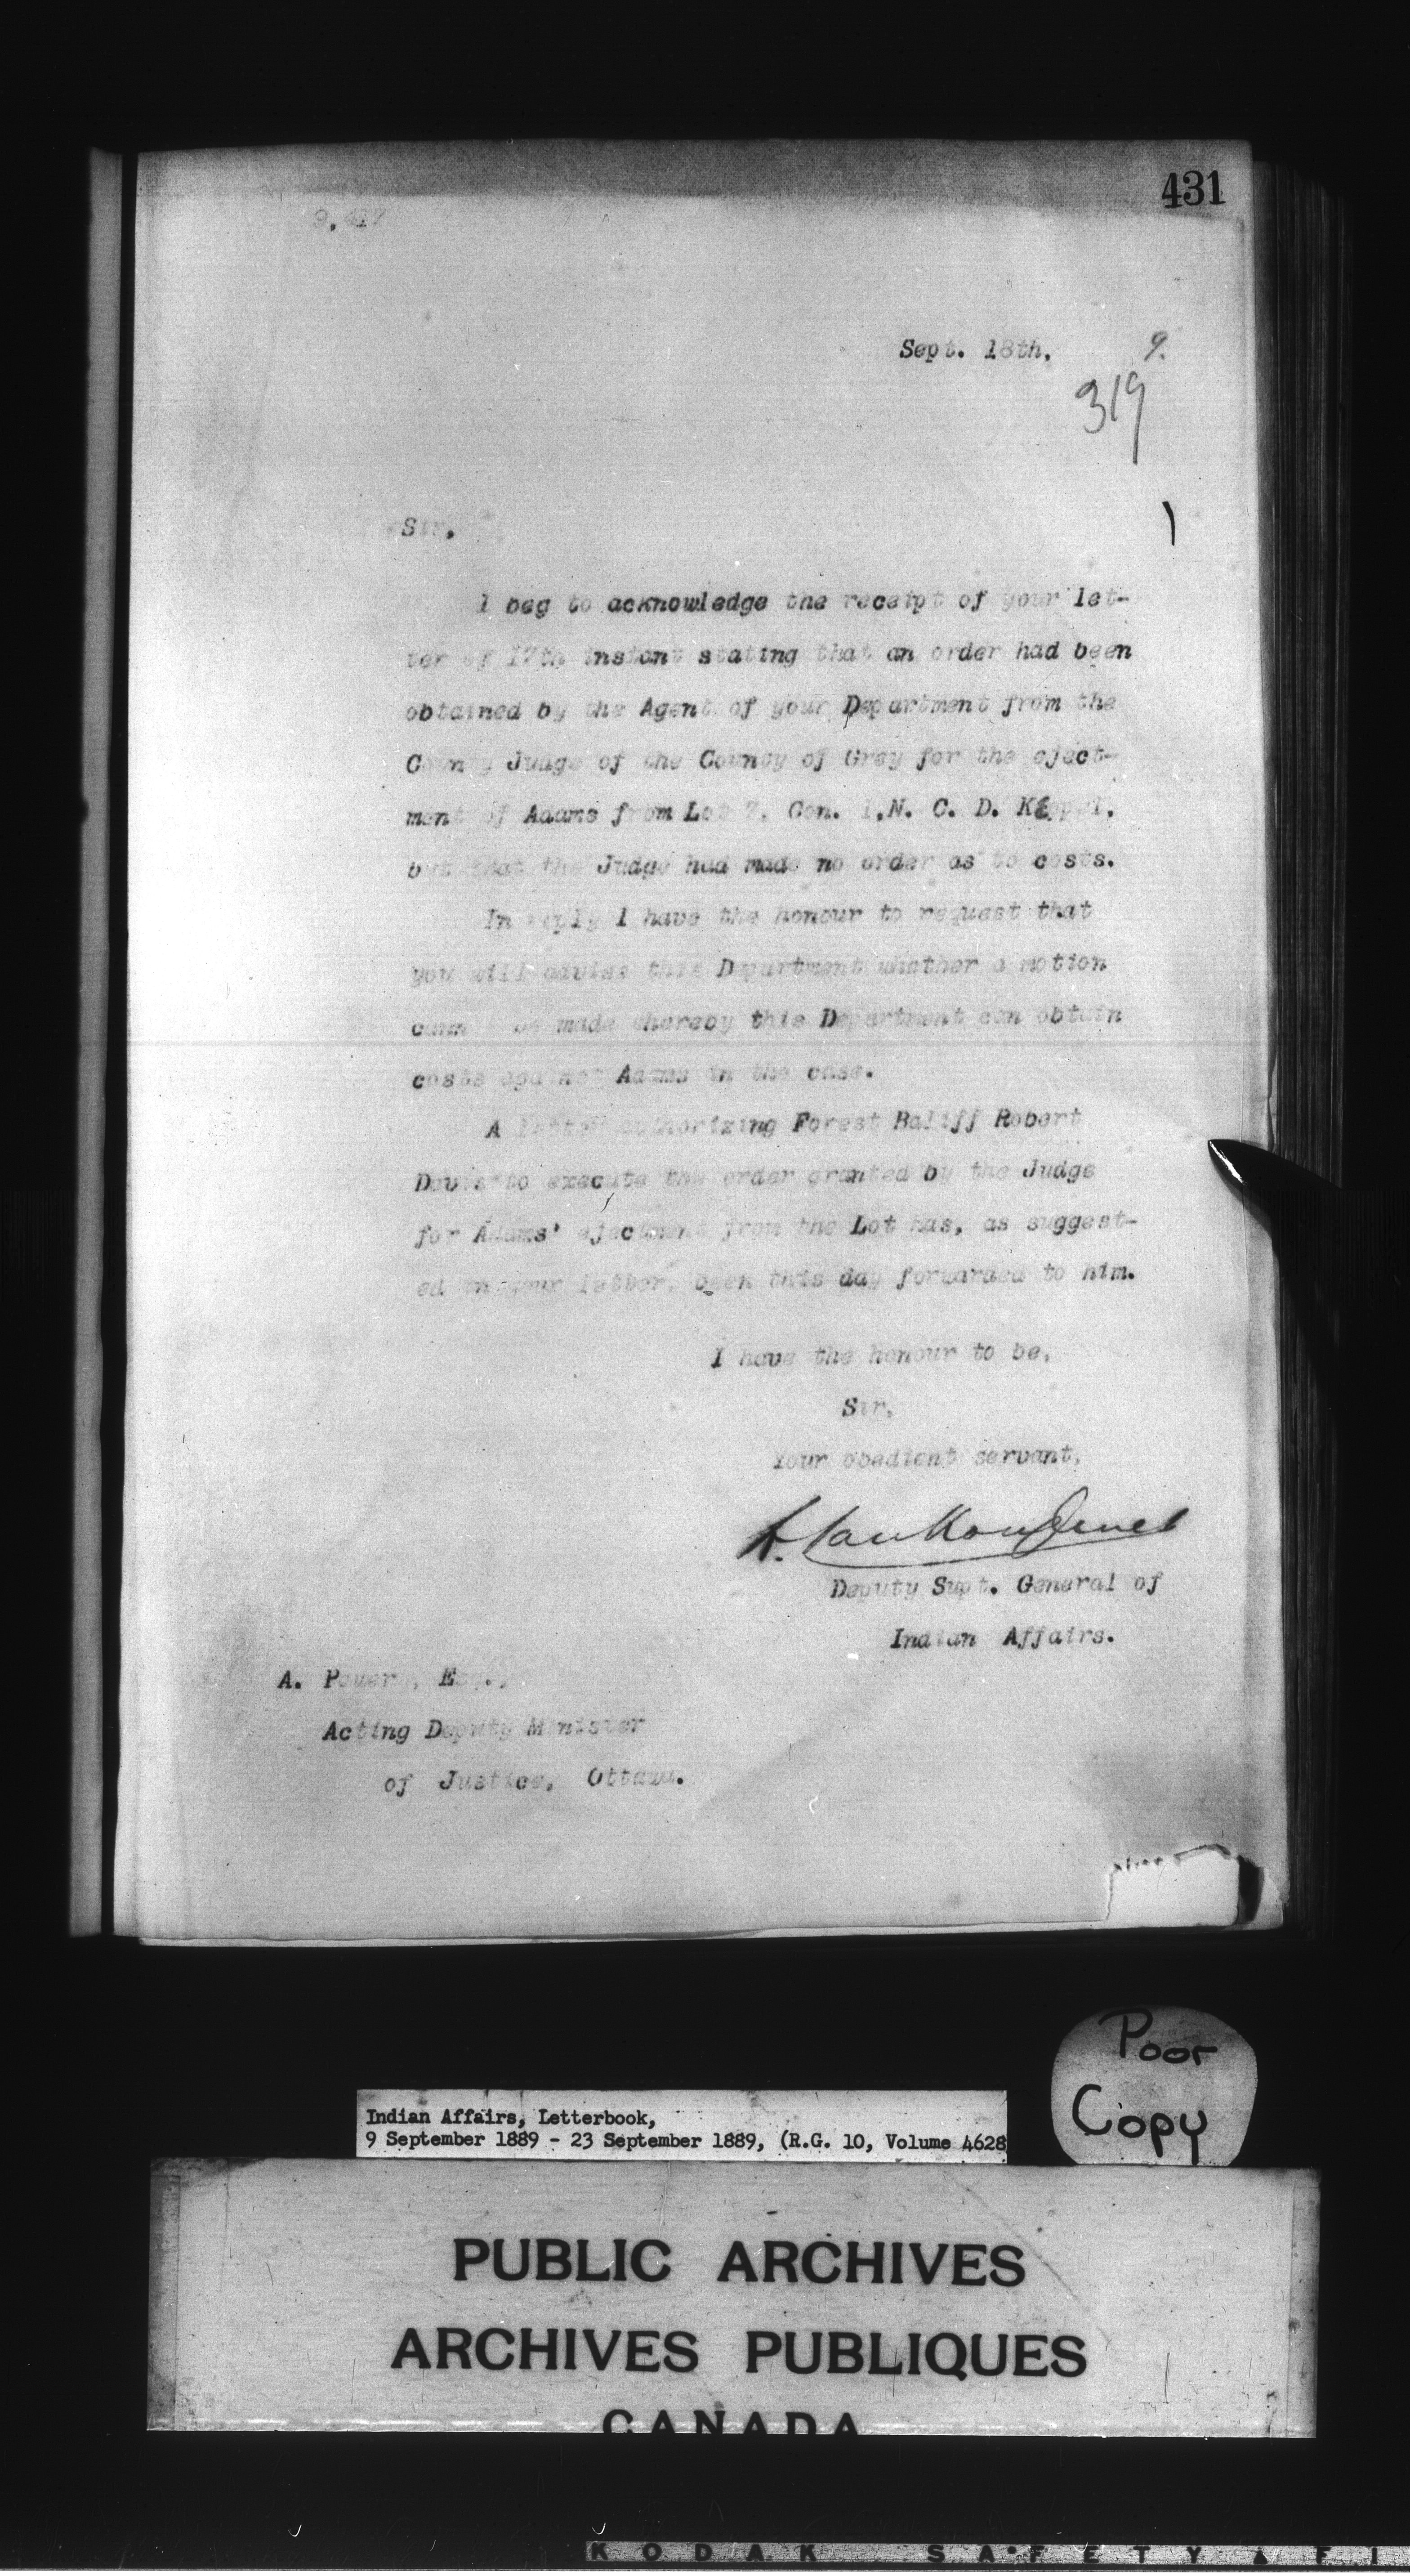 431
9,417
Sept. 18th, 9.
319
Sir,
I beg to acknowledge the receipt of your let-
ter of 17th instant stating that an order had been
obtained by the Agent of your Department from the
County Judge of the County of Grey for the eject-
ment of Adams from Lot 7, Con. 1, N. C. D. Keppel,
but that the Judge had made no order as to costs.
In reply I have the honour to request that
you will advise this Department whether a motion
cannot be made whereby this Department can obtain
costs against Adams in the case.
A letter authorizing Forest Baliff Robert
Davis to execute the order granted by the Judge
for Adams' ejectment from the Lot has, as suggest-
ed in your letter, been this day forwarded to him.
I have the honour to be,
Sir,
Your obedient servant,
L. VanKoughnet
Deputy Supt. General of
Indian Affairs.
A. Power, Esq.,
Acting Deputy Minister
of Justice, Ottawa.
Poor
Copy
Indian Affairs, Letterbook,
9 September 1889 - 23 September 1889, (R.G. 10, Volume 4628
PUBLIC ARCHIVES
ARCHIVES PUBLIQUES
CANADA
KODAK SAFETY FI